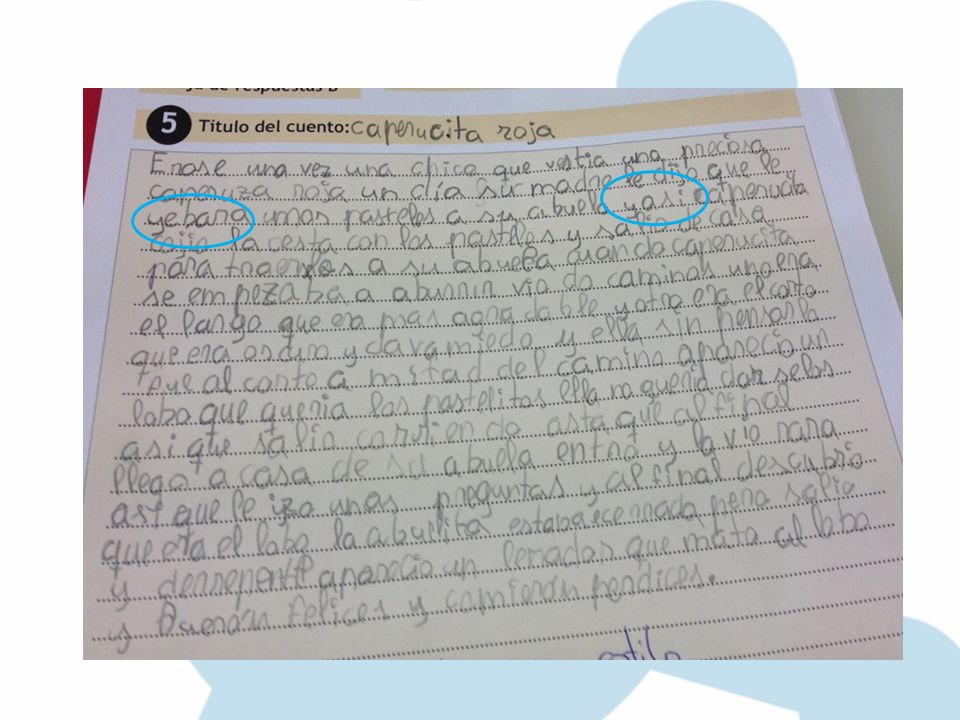 ja de respuestas B
5 Título del cuento: caperucita roja
Erase una vez una chica que vestia una preciosa
caperuza roja un dia su madre le dijo que le
yebara unos pasteles a su abuela y asi caperucita
cojio la cesta con los pasteles y salio de casa
para traerlos a su abuela cuando caperucita
se empezaba a aburrir vio do caminos uno era
el largo que era mas agradable y otro era el corto
que era oscuro y dava miedo y ella sin pensarlo
fue al corto a mitad del camino aparecio un
lobo que queria los pastelitos ella no queria darselos
asi que salio corriendo asta que al final
llego a casa de su abuela entro y la vio rara
asi que le izo unas preguntas y al final descubrio
que era el lobo la abuelita estaba ecerrada pero salio
y derrepente aparecio un leñador que mata al lobo
y fueron felices y comieron perdices.
estilo